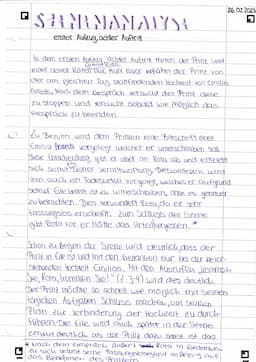 26.02.2025
SZENENANALYSE
erster Aufzug, achter Auftritt
In dem ersten Aufzug, achter Auftritt treten der Prinz und
einer seiner Räte auf. Kurz zuvor erfährt der Prinz von
der am gleichen Tag stattfindenden Hochzeit von Emilia
Galotti. Nach dem Gespräch versucht der Prinz diese
zu stoppen und versucht sobald wie möglich das
Gespräch zu beenden.
Zu Beginn wird dem Prinzen eine Bittschrift einer
Emilia vorgelegt welcher er unterschreiben soll.
Diese Entscheidung gibt er aber an Rota ab und entzieht
sich somit seiner Verantwortung. Desweiteren wird
ihm auch ein Todesurteil vorgelegt, welches er aufgrund
seiner Eile bereit ist zu unterschreiben, ohne es genauer
zu betrachten. Dies verwundert Rota, da er sehr
fassungslos erscheint. Zum Schluss der Szene
gibt Rota vor er hätte das Urteil vergessen.
Schon zu Beginn der Szene wird deutlich, dass der
Prinz in Eile ist und mit den Gedanken nur bei der bevor-
stehenden Hochzeit Emilias. Mit den Ausrufen
Sie, Rota, kommen Sie!" wird dies deutlich.
Der Prinz möchte so schnell wie möglich mit seinen
täglichen Aufgaben Schluss machen, um seinen
Plan zur Verhinderung der Hochzeit zu durch-
führen. Die Eile wird auch später in der Szene
erneut deutlich, als der Prinz dazu bereit ist das
Nach dem Gespräch äußert Rota in Gedanken
zu sich selbst seine Fassungslosigkeit in Bezug auf
das Benehmen des Prinzen.